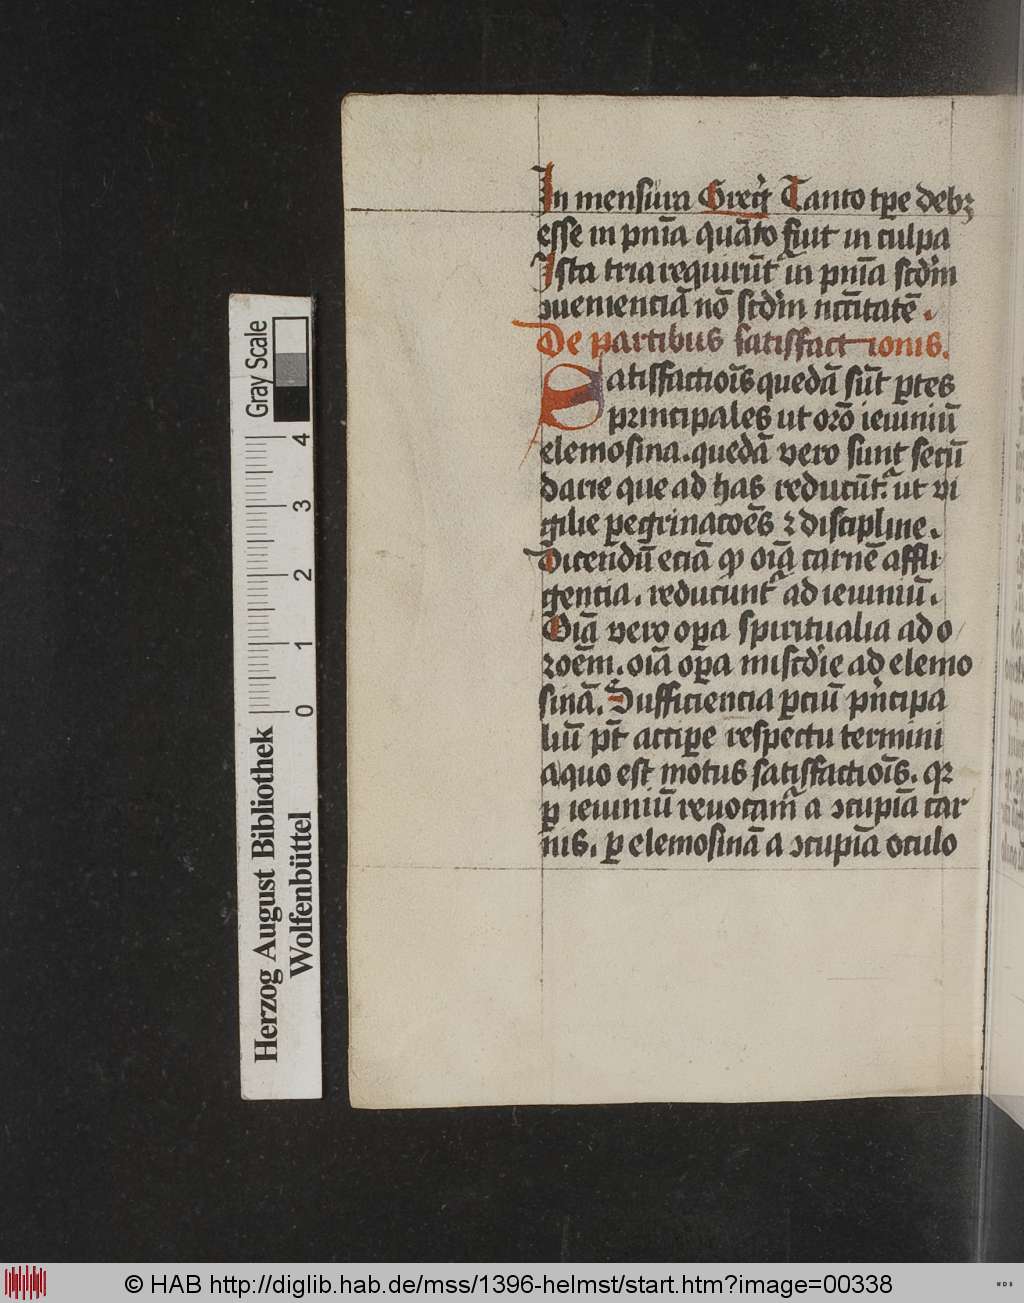 In mensura Greg᷒ Tanto tp̲e debꝫ
esse in pn̄ia quāto fiut in culpa
Ista tria requirūt᷒ in pn̄ia scd̄m
ↄueniencia̅ nō scd̄m nc̄citatē.
De partibus satisfactionis.
Satisfactiōis quedā sūt ꝑtes
principales ut orō ieiuniū
elemosina. quedā vero sunt secū
darie que ad has reducūt᷒ ut vi
gilie ꝑegrinacōes ⁊ discipline.
Dicendū eciā ꝙ oīa carnē affli
gencia. reducunt᷒ ad ieiuniū.
Oīa vero oꝑa spiritualia ad o
roēm. oīa oꝑa miscd̄ie ad elemo
sinā. Sufficiencia ꝑciū pn̄cipa
liū pt̄ acciꝑe respectu termini
a quo est motus satisfactiōis. qꝛ
ꝑ ieiuniū reuocam᷒ a ↄcupīa car
nis. ꝑ elemosinā a ↄcupīa oculo
Gray Scale
4 3 2 1 0
Herzog August Bibliothek
Wolfenbüttel
© HAB http://diglib.hab.de/mss/1396-helmst/start.htm?image=00338
WDB